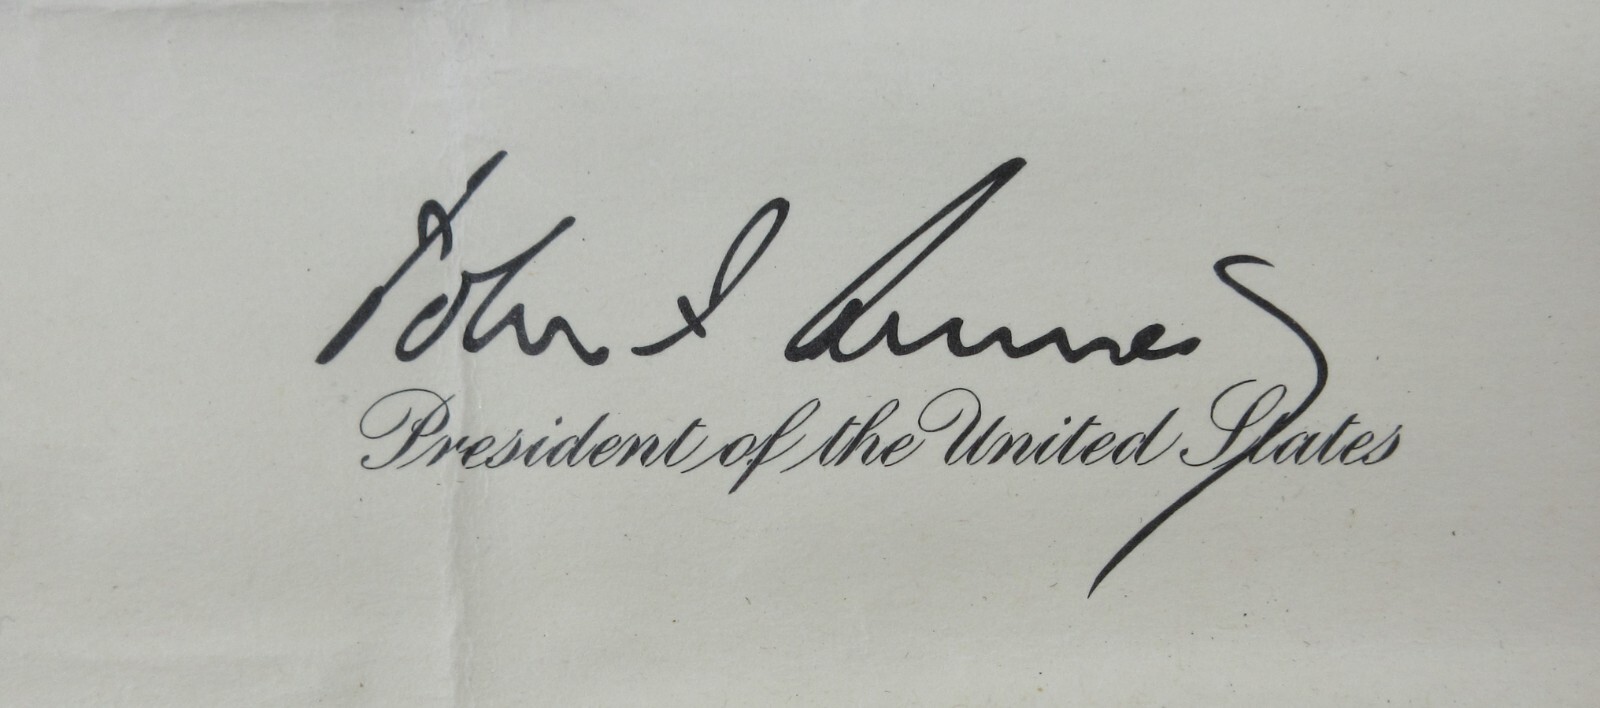 John F Kennedy
President of the United States